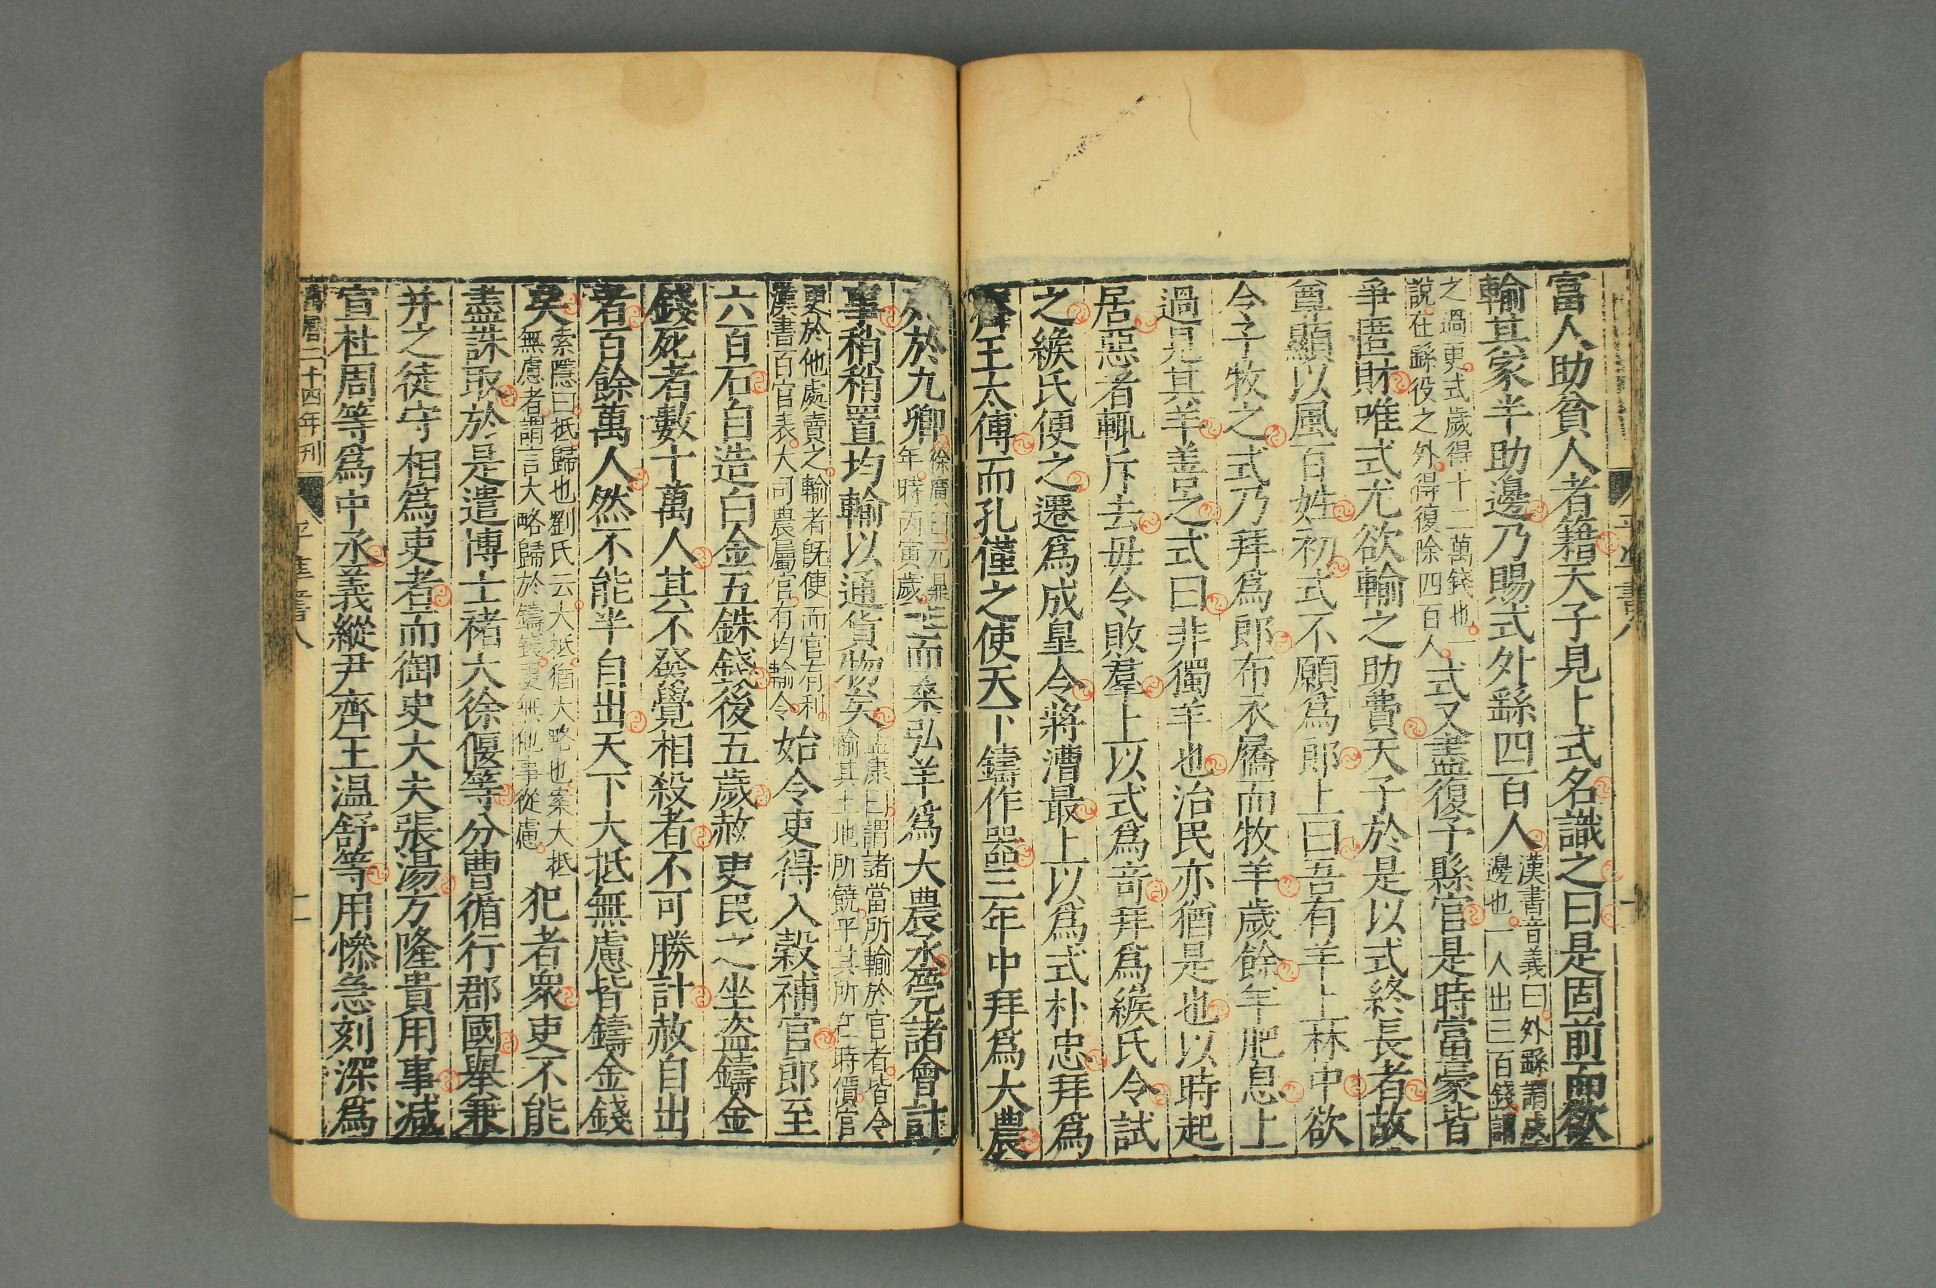 富人助貧人者籍天子見卜式名識之曰是固前而欲
輸其家半助邊乃賜式外繇四百人漢書音義曰外繇謂戍邊也一人出三百錢謂
之過更式歲得十二萬錢也一說在繇役之外得復除四百人式又盡復予縣官是時富豪皆
爭匿財唯式尤欲輸之助費天子於是以式終長者故
尊顯以風百姓初式不願爲郎上曰吾有羊上林中欲
令子牧之式乃拜爲郎布衣屩而牧羊歲餘羊肥息上
過見其羊善之式曰非獨羊也治民亦猶是也以時起
居惡者輒斥去毋令敗羣上以式爲奇拜爲緱氏令試
之緱氏便之遷爲成皐令將漕最上以爲式朴忠拜爲
齊王太傅而孔僅之使天下鑄作器三年中拜爲大農
列於九卿徐廣曰元鼎二年時丙寅歲而桑弘羊爲大農丞筦諸會計
事稍稍置均輸以通貨物矣孟康曰謂諸當所輸於官者皆令輸其土地所饒平其所在時價官
更於他處賣之輸者旣便而官有利漢書百官表大司農屬官有均輸令始令吏得入穀補官郎至
六百石自造白金五銖錢後五歲赦吏民之坐盜鑄金
錢死者數十萬人其不發覺相殺者不可勝計赦自出
者百餘萬人然不能半自出天下大抵無慮皆鑄金錢
矣索隱曰抵歸也劉氏云大抵猶大略也案大抵無慮者謂言大略歸於鑄錢更無他事從慮犯者衆吏不能
盡誅取於是遣博士褚大徐偃等分曹循行郡國舉兼
并之徒守相爲吏者而御史大夫張湯方隆貴用事減
宣杜周等爲中丞義縱尹齊王温舒等用慘急刻深爲
萬曆二十四年刊 平準書八 十一